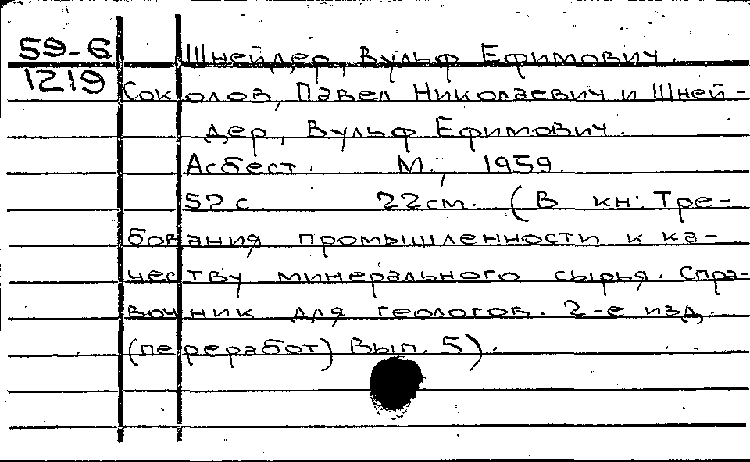 59-6 Шнейдер, Вульф Ефимович.
1219 Соколов, Павел Николаевич и Шней-
дер, Вульф Ефимович.
Асбест. М., 1959.
52 с. 22 см. (В кн: Тре-
бования промышленности к ка-
честву минерального сырья. Спра-
вочник для геологов. 2-е изд.
(переработ) Вып. 5).